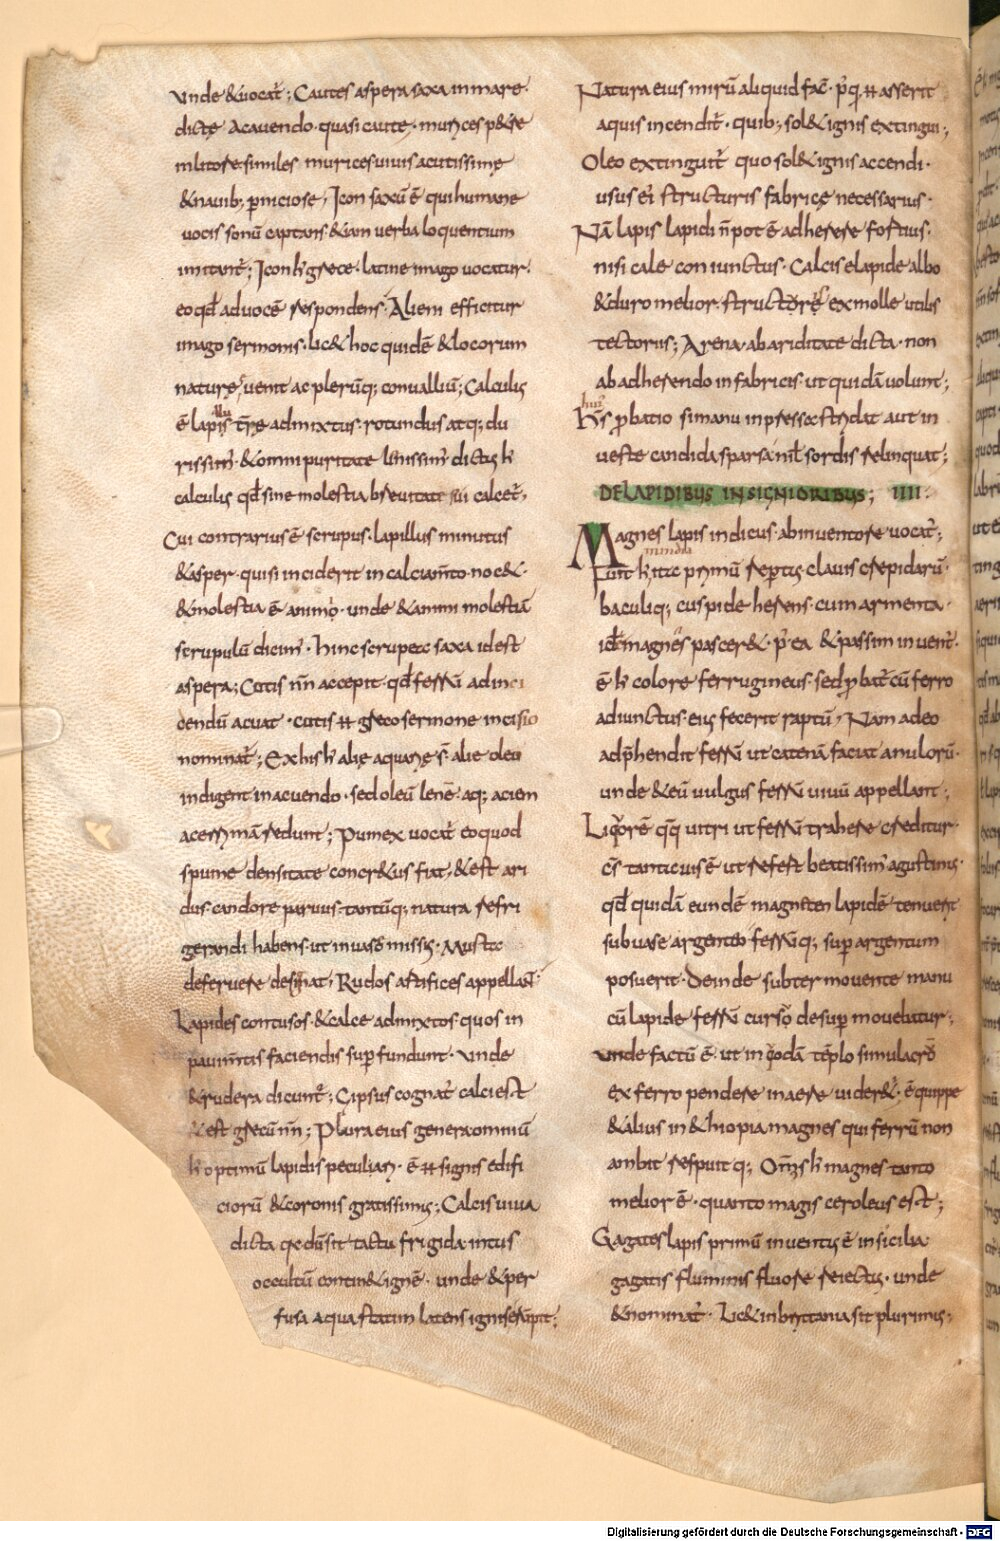 unde & uocat̄; Cautes aspera saxa in mare.
dictę a cauendo. quasi caute. murices p&re
in litore similes murices uiuis acutissimę
& nauib; ꝑniciose; Icon saxū ē qui humanę
uocis sonū captans. &iam uerba loquentium
imitant̄; Icon h̄ grece. latine imago uocatur.
eo qđ ad uocē respondens. Alieni efficitur
imago sermonis. lic& hoc quidē & locorum
naturę uenit ac plerūq; conualliū; Calculus
ē lapis tr̄ę admixtus. rotundus atq; du
rissim̄. & omni puritate lenissim̄ dictus h̄
calculus qđ sine molestia breuitate sui calcet̄.
Cui contrarius ē scrupus. lapillus minutus
& asper. qui si inciderit in calciam̄to noc&.
& molestia ē animo. unde & animi molestiā
scrupulū dicim̄. hinc scrupee saxa idest
aspera; Cotis nn̄ accepit. qđ ferrū ad inci
dendū acuat. cotis ħ greco sermone incisio
nominat̄; Ex his h̄ alię aquarię s̄. alie oleo
indigent in acuendo. sed oleū lenē. aq; aciem
acerrimā redunt; Pumex uocat̄ eo quod
spume densitate concr&us fiat, & est ari
dus candore paruus. tantūq; natura refri
gerandi habens. ut in uaso missus. musta
deferuere desinat; Rudos artifices appellan̄t
Lapides contusos. & calce admixtos. quos in
pauim̄tis faciendis suꝑ fundunt. unde
& rudera dicunt̄; Gipsus cognat̄ calci est
& est grecū nn̄; Plura eius genera omniū
h̄ optimū lapidis peculiari. ē ħ signis edifi
ciorū & coronis gratissimus; Calcis uiua
dicta qa dū sit tactu frigida. intus
occultū contin& ignē. unde & per
fusa aqua statim latens ignis erūpit;
Natura eius mirū aliquid fac̄. p̄q ħ asserit
aquis incendit̄. quib; sol& ignis extingui;
Oleo extinguit̄ quo sol& ignis accendi.
usus ei structuris fabricę necessarius.
Nā lapis lapidi n̄ pot ē adherere fortius.
nisi calce coniunctus. Calcis e lapide albo
& duro melior. structorę ex molle utilis
tectoriis; Arena. ab ariditate dicta. non
ab adherendo in fabricis. ut quidā uolunt;
hui᷒
h̄s ꝓbatio si manu inpressa stridat aut in
ueste candida sparsa nil̄ sordis relinquat;
DE LAPIDIBUS INSIGNIORIBUS; IIII.
Magnes lapis indicus. ab inuentore uocat̄;
Funt h̄ itac primū reꝑtus. clauis crepidarū
baculiq; cuspide herens. cum armenta.
id̄ magnes pascer&. p̄ ea & passim inuent̄.
ē h̄ colore ferrugineus. sed ꝓbat̄ cū ferro
adiunctus. eius fecerit raptū; Nam adeo
adp̄hendit ferrū ut catenā faciat anulorū.
unde & eū uulgus ferrū uiuū appellant;
Liquorē qq uitri ut ferrū trahere creditur.
cs̄ tantę uis ē ut refert beatissim̄ agustinus.
qđ quidā eundē magneten lapidē tenuerit
sub uase argenteo ferrūq; suꝑ argentum
posuerit. Deinde subter mouente manu
cū lapide ferrū curso desuꝑ mouebatur;
unde factū ē ut in qodā tēplo simulacrū
ex ferro pendere in aere uider&. ē quippe
& alius in &hiopia magnes qui ferrū non
ambit respuit q; Om̄s h̄ magnes tanto
melior ē. quanto magis ceroleus est;
Gagates lapis primū inuentus ē in sicilia
gagatis fluminis fluore reiectus. unde
& nominat̄. Lic& in brittania sit plurimus;
Digitalisierung gefördert durch die Deutsche Forschungsgemeinschaft - DFG